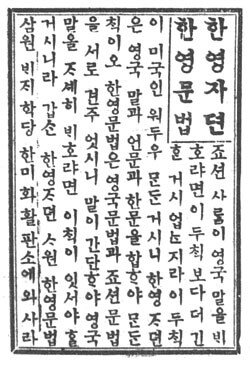 한영자뎐
한영문법
죠션 사ᄅᆞᆷ이 영국 말을 ᄇᆡ
호랴면 이 두ᄎᆡᆨ 보다 더 긴
ᄒᆞᆫ 거시 업ᄂᆞᆫ지라 이 두ᄎᆡᆨ
이 미국인 원두우 ᄆᆞᆫᄃᆞᆫ 거시니 한영ᄌᆞ뎐
은 영국 말과 언문과 한문을 합ᄒᆞ야 ᄆᆞᆫᄃᆞᆫ
ᄎᆡᆨ이오 한영문법은 영국문법과 죠션 문법
을 서로 견주 엇시니 말이 간단ᄒᆞ야 영국
말을 ᄌᆞ셰히 ᄇᆡ호랴면 이 ᄎᆡᆨ이 잇서야 ᄒᆞᆯ
거시니라 갑슨 한영ᄌᆞ뎐 ᄉᆞ원 한영문법
삼원 ᄇᆡᄌᆡ 학당 한미화활판소에 와 사라